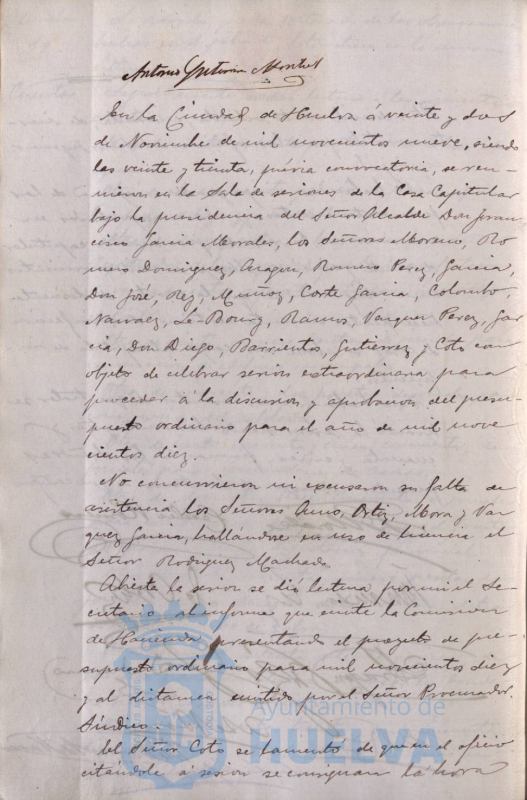 Antonio Gutierrez Montiel
En la Ciudad de Huelva á veinte y dos
de Noviembre de mil novecientos nueve, siendo
las veinte y treinta, prévia convocatoria, se reu-
nieron en la Sala de sesiones de la Casa Capitular
bajo la presidencia del Señor Alcalde Don Fran
cisco Garcia Morales, los Señores Moreno, Ro
mero Dominguez, Aragon, Romero Perez, Garcia,
Don José, Rey, Muñoz, Corte Garcia, Colombo,
Narvaez, Le-Bourg, Ramos, Vazquez Perez, Gar
cia, Don Diego, Barrientos, Gutierrez y Coto con
objeto de celebrar sesion extraordinaria para
proceder á la discusion y aprobacion del presu-
puesto ordinario para el año de mil nove
cientos diez.
No concurrieron ni excusaron su falta de
asistencia los Señores Ortiz, Mora y Vaz
quez Garcia, hallándose en uso de licencia el
Señor Rodriguez Machado.
Abierta la sesion se dió lectura por mi el Se-
cretario al informe que emite la Comision
de Hacienda presentando el proyecto de pre-
supuesto ordinario para mil novecientos diez
y al dictamen emitido por el Señor Procurador
Síndico.
El Señor Coto se lamentó de que en el oficio
citándole á sesion se consignara la hora
Ayuntamiento de
HUELVA